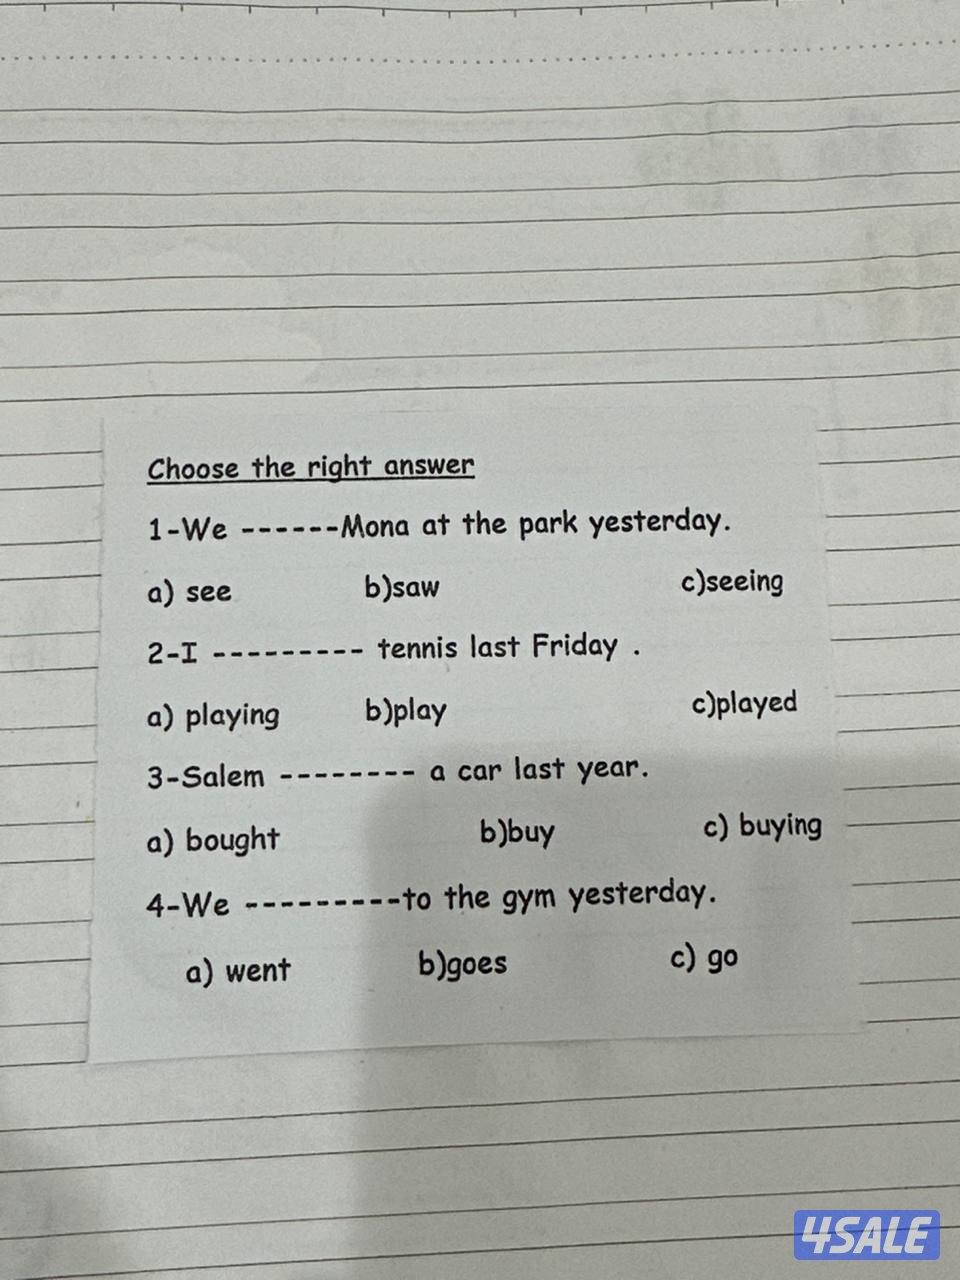 Choose the right answer
1-We ------Mona at the park yesterday.
a) see b)saw c)seeing
2-I --------- tennis last Friday .
a) playing b)play c)played
3-Salem -------- a car last year.
a) bought b)buy c) buying
4-We ---------to the gym yesterday.
a) went b)goes c) go
4SALE